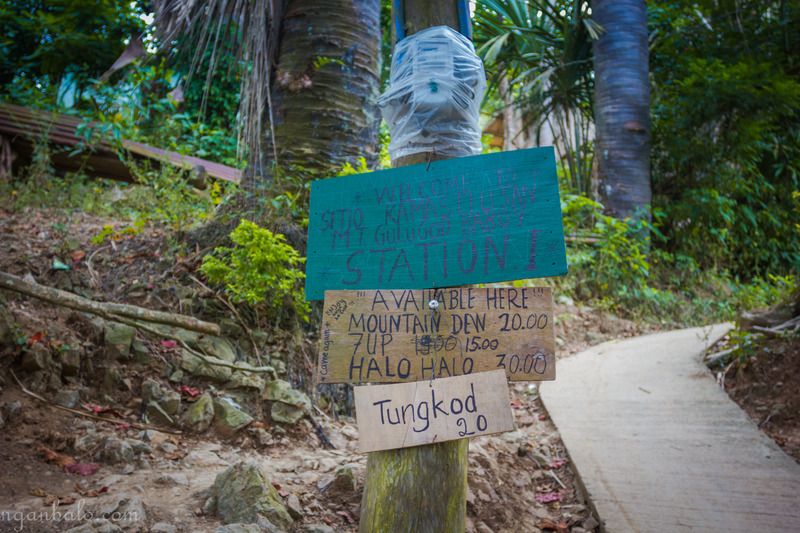 WELCOME
SITIO
MT GULUGOD BABOY
STATION !
!!! AVAILABLE HERE !!!
MOUNTAIN DEW 20.00
7UP 15.00
HALO HALO 30.00
come again
Tungkod
20